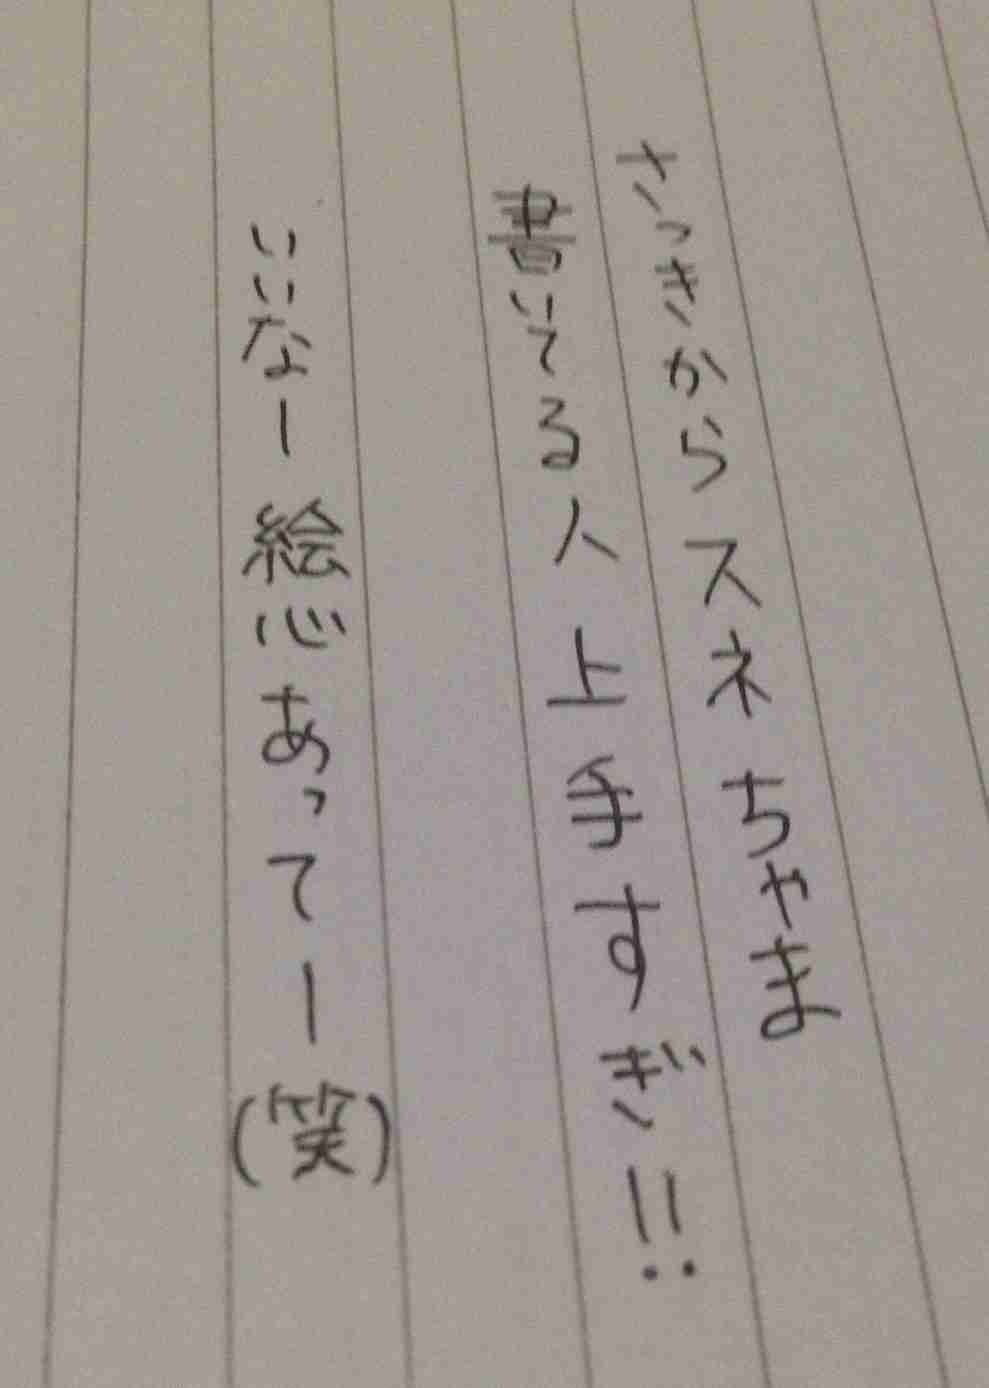 さっきからスネちゃま
書いてる人上手すぎ!!
いいなー絵心あってー(笑)